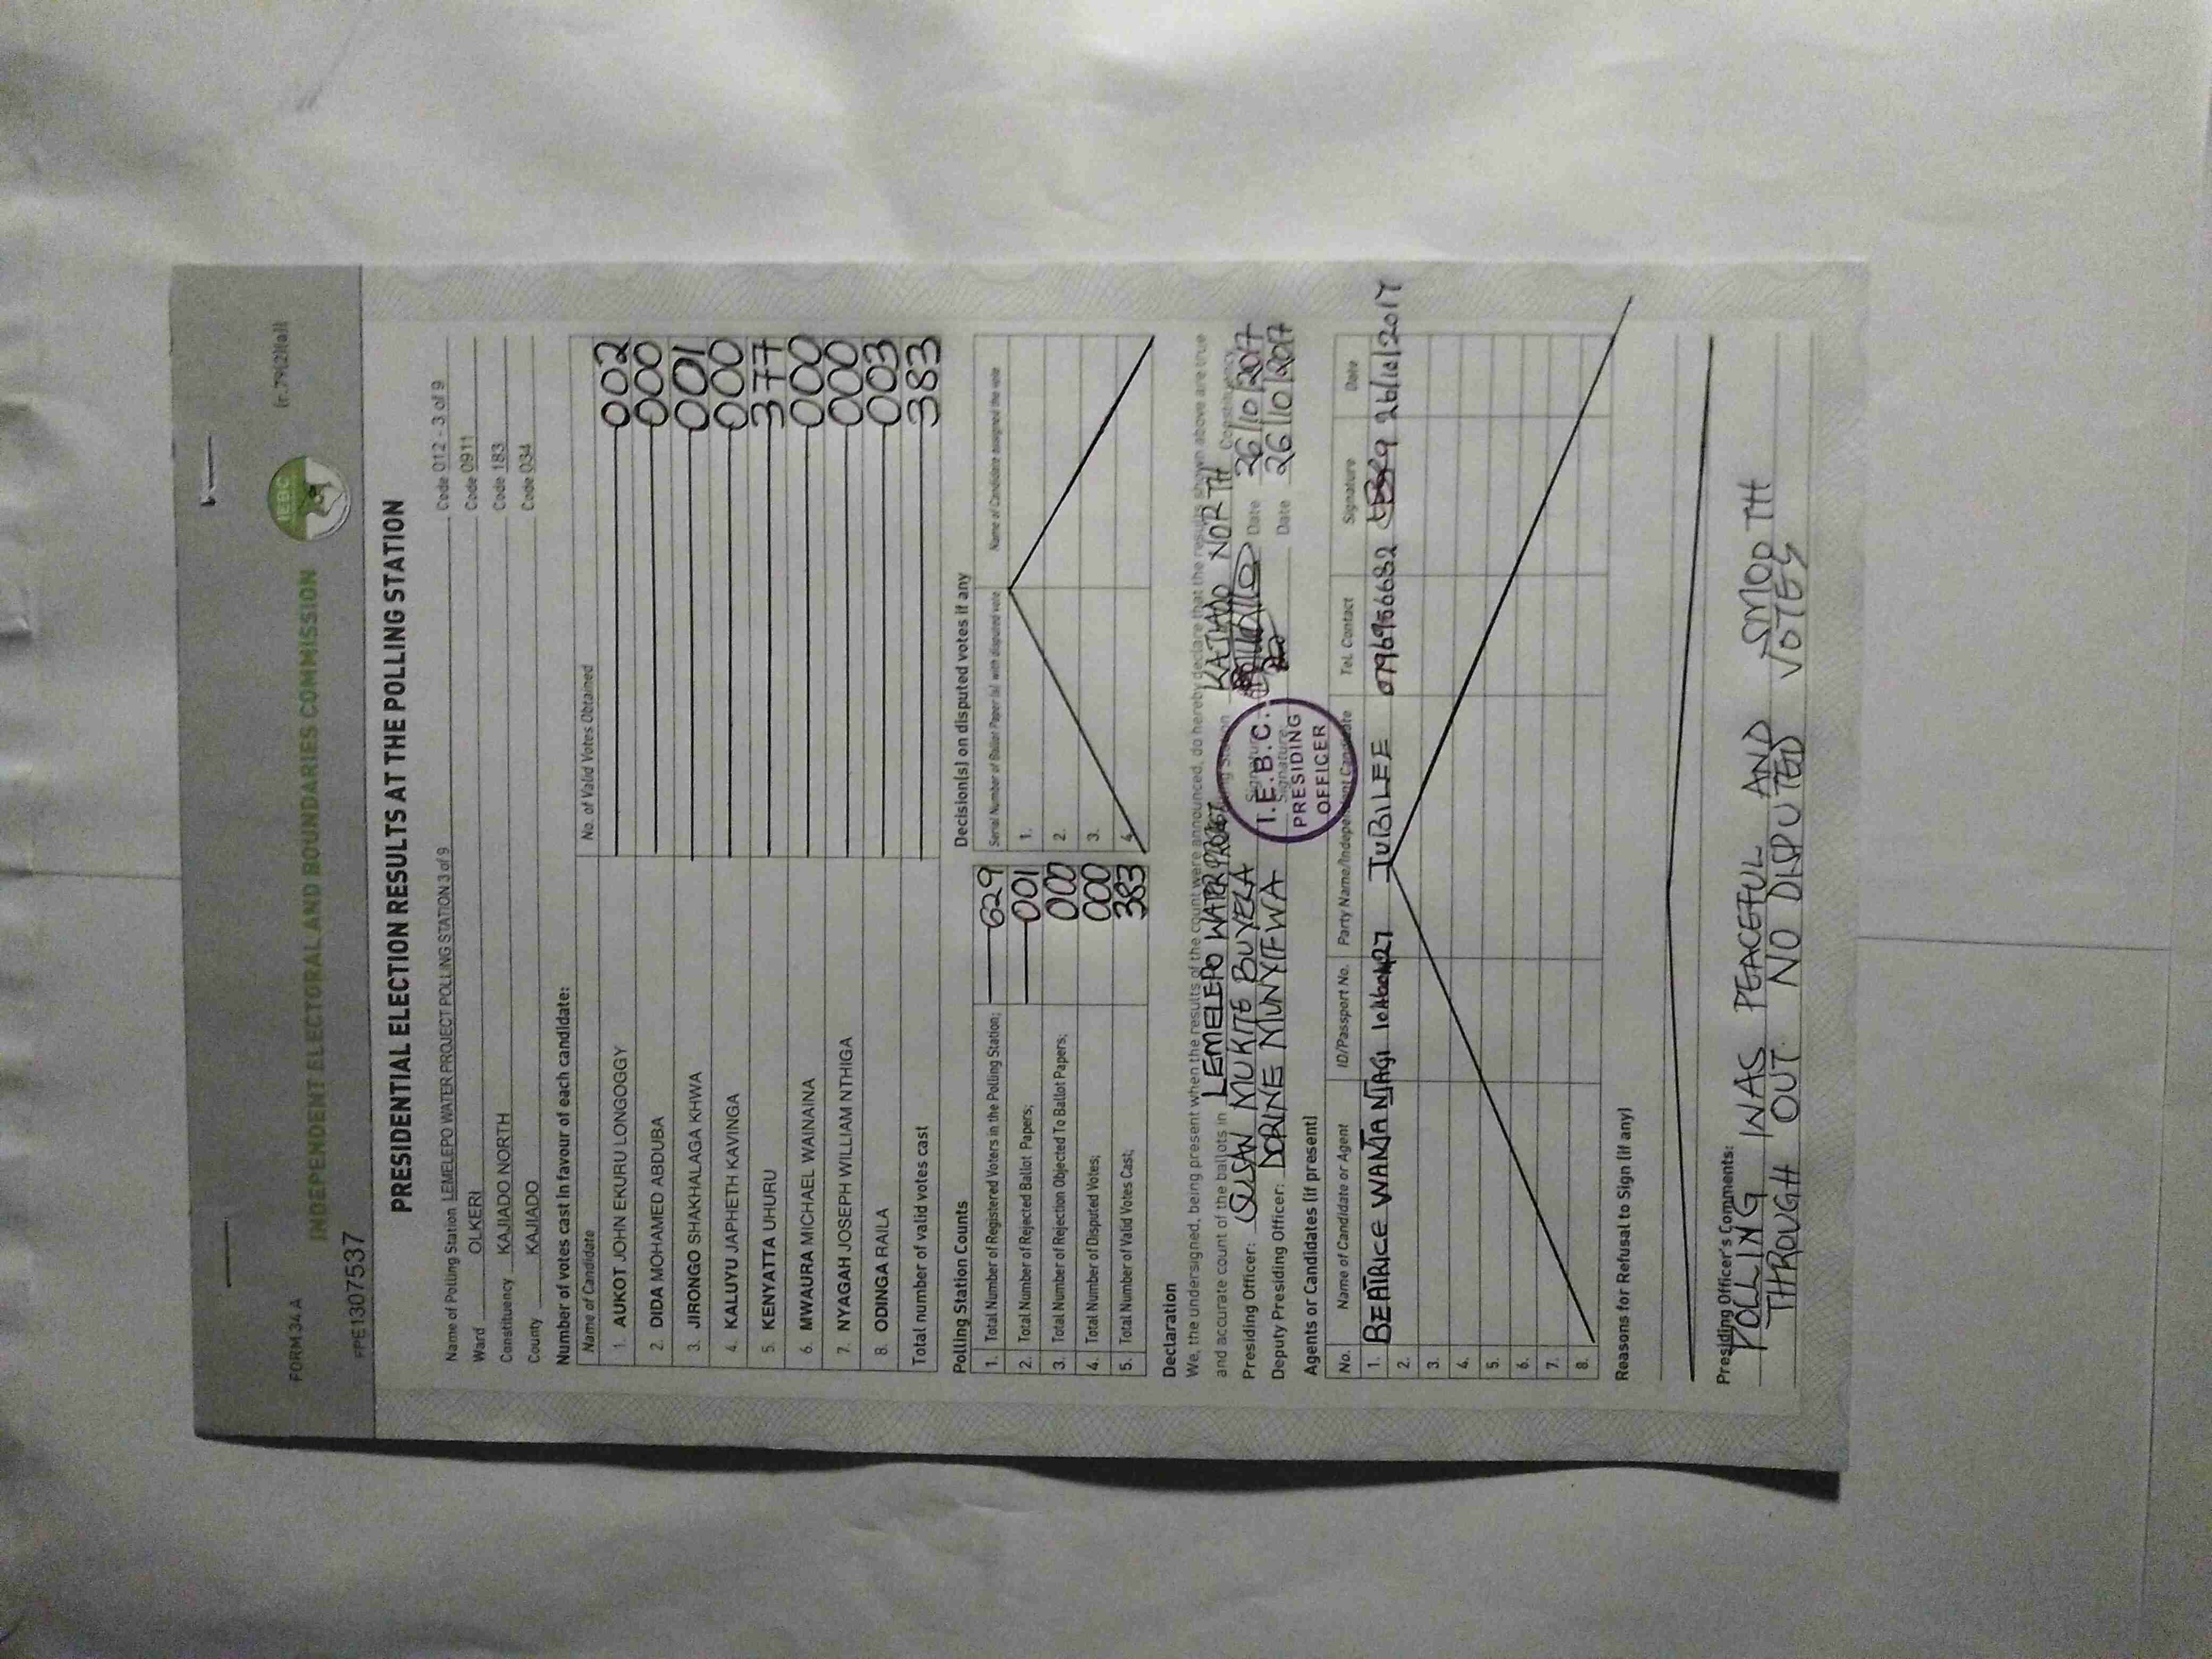 FORM 34 A
(r.79(2)(a))
INDEPENDENT ELECTORAL AND BOUNDARIES COMMISSION
IEBC
FPE1307537
PRESIDENTIAL ELECTION RESULTS AT THE POLLING STATION
Name of Polling Station LEMELEPO WATER PROJECT POLLING STATION 3 of 9 Code 012 - 3 of 9
Ward OLKERI Code 0911
Constituency KAJIADO NORTH Code 183
County KAJIADO Code 034
Number of votes cast in favour of each candidate:
Name of Candidate No. of Valid Votes Obtained
1. AUKOT JOHN EKURU LONGOGGY 002
2. DIDA MOHAMED ABDUBA 000
3. JIRONGO SHAKHALAGA KHWA 001
4. KALUYU JAPHETH KAVINGA 000
5. KENYATTA UHURU 377
6. MWAURA MICHAEL WAINAINA 000
7. NYAGAH JOSEPH WILLIAM NTHIGA 000
8. ODINGA RAILA 003
Total number of valid votes cast 383
Polling Station Counts
1. Total Number of Registered Voters in the Polling Station; 629
2. Total Number of Rejected Ballot Papers; 001
3. Total Number of Rejection Objected To Ballot Papers; 000
4. Total Number of Disputed Votes; 000
5. Total Number of Valid Votes Cast; 383
Decision(s) on disputed votes if any
Serial Number of Ballot Paper (s) with disputed vote Name of Candidate assigned the vote
1.
2.
3.
4.
Declaration
We, the undersigned, being present when the results of the count were announced, do hereby declare that the results shown above are true
and accurate count of the ballots in LEMELEPO WATER PROJECT Polling Station KAJIADO NORTH Constituency
Presiding Officer: SUSAN MUKITE BUYELA Signature Date 26/10/2017
Deputy Presiding Officer: DORINE MUNYIFWA Signature Date 26/10/2017
I.E.B.C.
PRESIDING
OFFICER
Agents or Candidates (if present)
No. Name of Candidate or Agent ID/Passport No. Party Name/Independent Candidate Tel. Contact Signature Date
1. BEATRICE WANJA NJAGI JUBILEE 0796956682 26/10/2017
2.
3.
4.
5.
6.
7.
8.
Reasons for Refusal to Sign (if any)
Presiding Officer's Comments:
POLLING WAS PEACEFUL AND SMOOTH
THROUGH OUT. NO DISPUTED VOTES